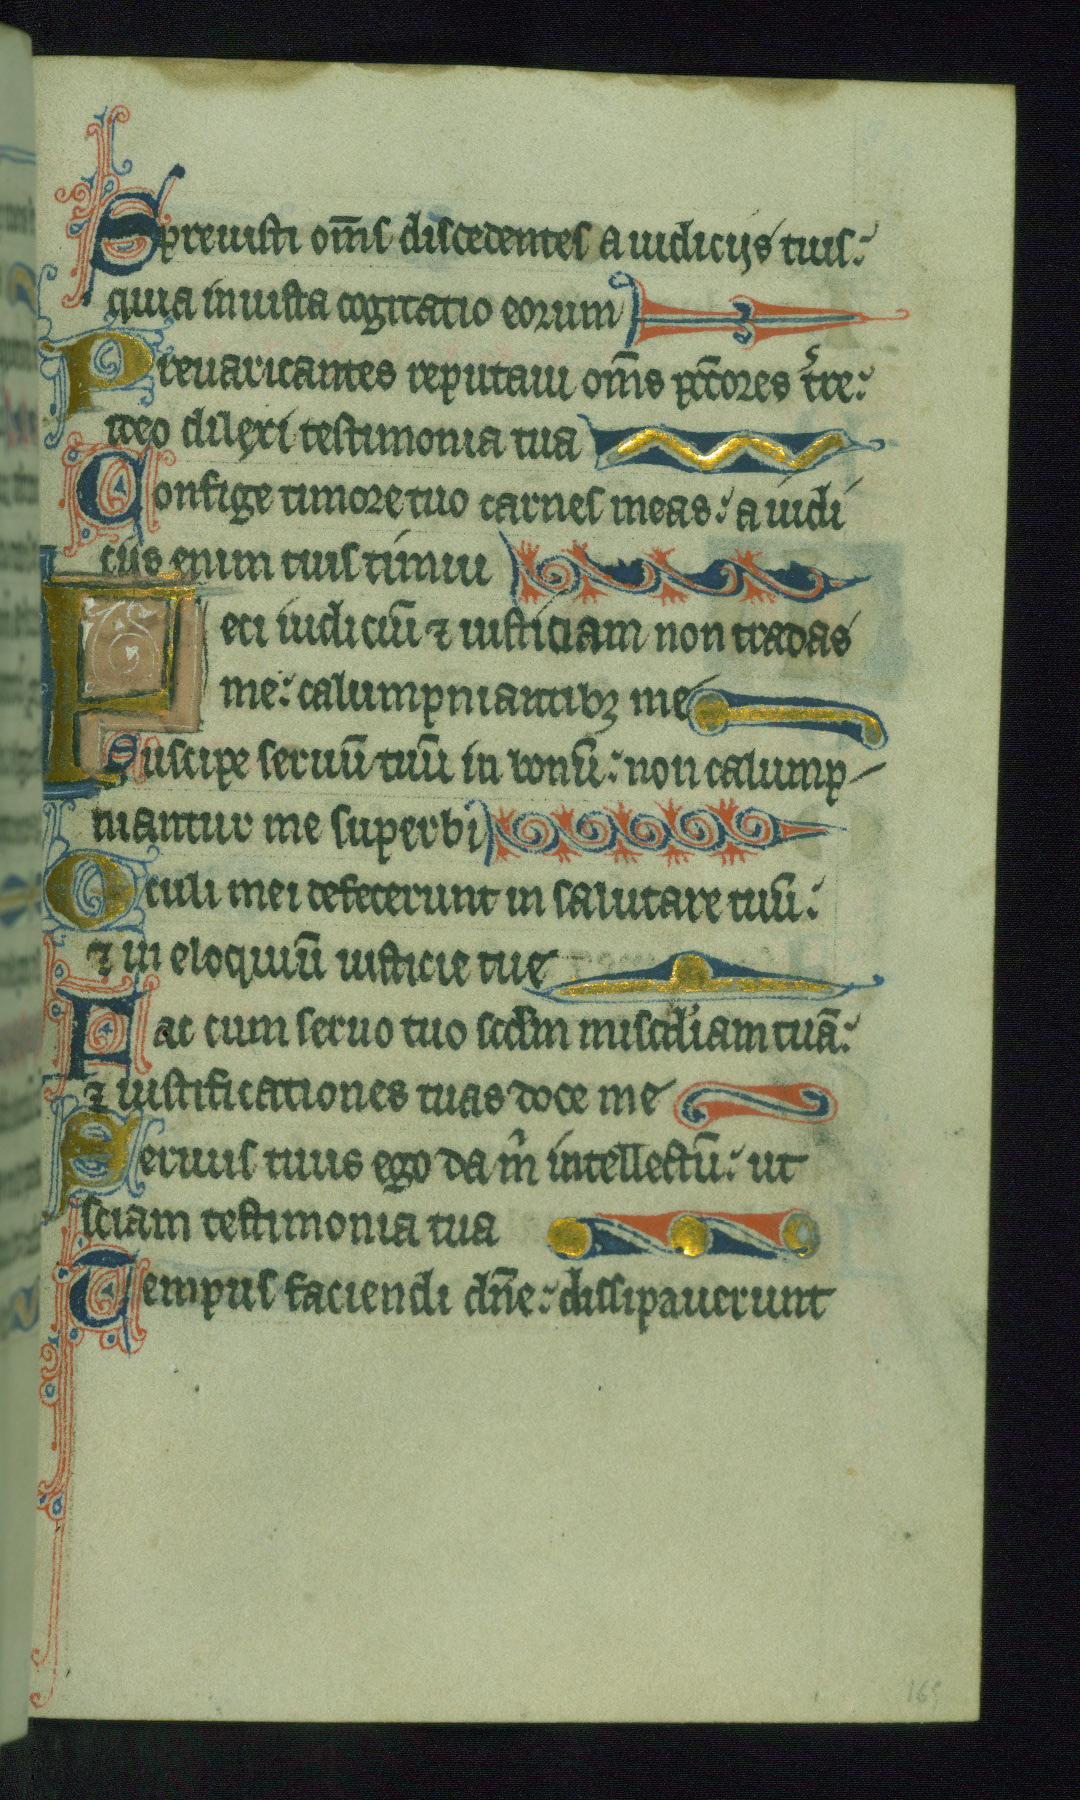 Spreuisti om̅s discedentes a iudiciis tuis:
quia iniusta cogitatio eorum
Preuaricantes reputaui om̅s pc̅cores t̅re:
ideo dilexi testimonia tua
Confige timore tuo carnes meas: a iudi
ciis enim tuis timui
Feci iudiciu̅ ⁊ iusticiam non tradas
me: calumpniantibꝫ me
Suscipe seruu̅ tuu̅ in bonu̅: non calump
niantur me superbi
Oculi mei defecerunt in salutare tuu̅:
⁊ in eloquiu̅ iusticie tue
Fac cum seruo tuo scd̅m misc̅diam tua̅:
⁊ iustificationes tuas doce me
Seruus tuus ego da m̍ intellectu̅: ut
sciam testimonia tua
Tempus faciendi dn̅e: dissipauerunt